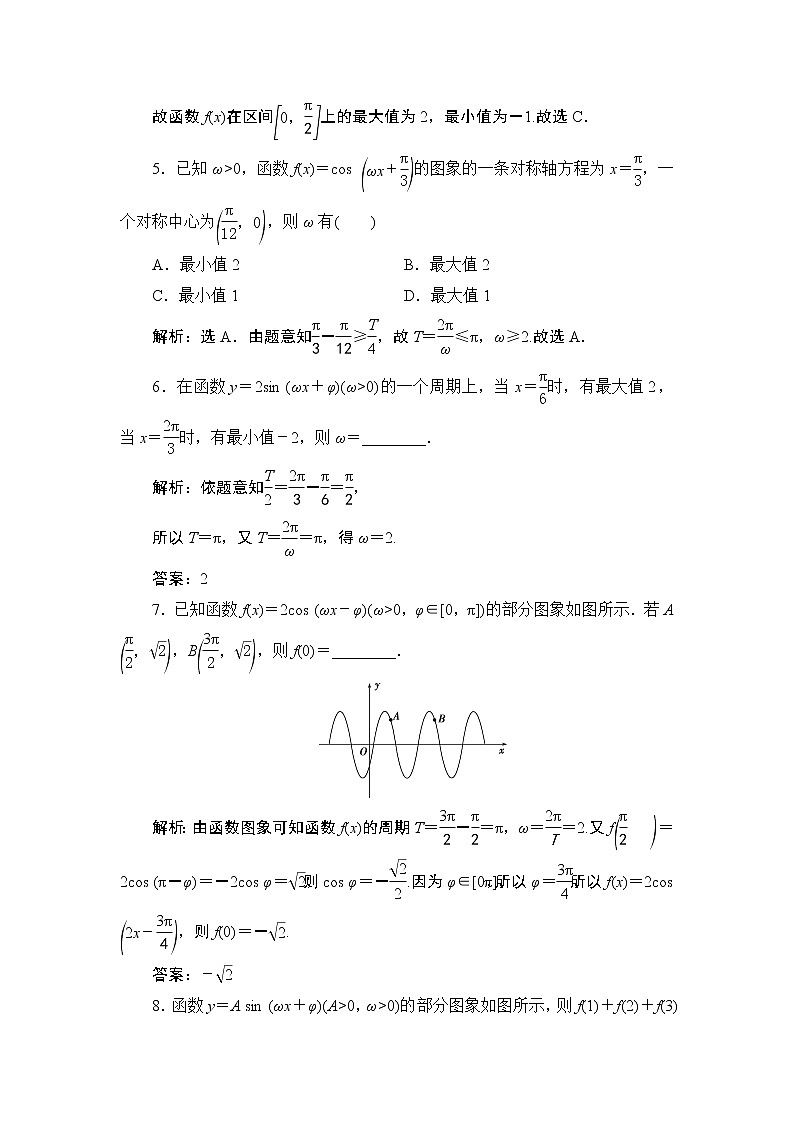 故函数 f(x)在区间[0，π/2]上的最大值为2，最小值为－1.故选C．
5．已知ω>0，函数 f(x)＝cos (ωx＋π/3)的图象的一条对称轴方程为x＝π/3，一
个对称中心为(π/12，0)，则ω有(　　)
A．最小值2　　B．最大值2
C．最小值1　　D．最大值1
解析：选A．由题意知π/3－π/12≥T/4，故T＝2π/ω≤π，ω≥2.故选A．
6．在函数y＝2sin (ωx＋φ)(ω>0)的一个周期上，当x＝π/6时，有最大值2，
当x＝2π/3时，有最小值－2，则ω＝________．
解析：依题意知T/2＝2π/3－π/6＝π/2，
所以T＝π，又T＝2π/ω＝π，得ω＝2.
答案：2
7．已知函数 f(x)＝2cos (ωx－φ)(ω>0，φ∈[0，π])的部分图象如图所示．若A
(π/2，√2)，B(3π/2，√2)，则 f(0)＝________．
y
A
B
O
x
解析：由函数图象可知函数 f(x)的周期T＝3π/2－π/2＝π，ω＝2π/T＝2.又 f(π/2　)＝
2cos (π－φ)＝－2cos φ＝√2则 cos φ＝－√2/2.因为φ∈[0π]所以φ＝3π/4所以 f(x)＝2cos
(2x－3π/4)，则 f(0)＝－√2.
答案：－√2
8．函数y＝A sin (ωx＋φ)(A>0，ω>0)的部分图象如图所示，则 f(1)＋f(2)＋f(3)